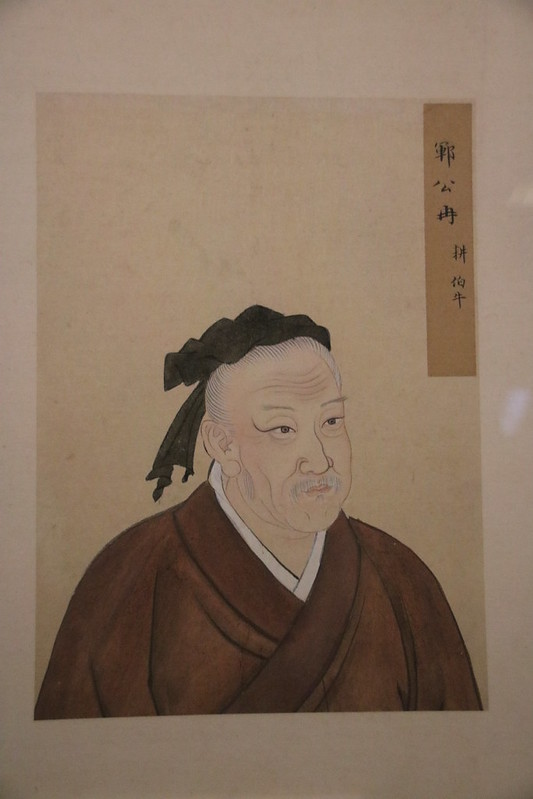 鄆公冉耕伯牛